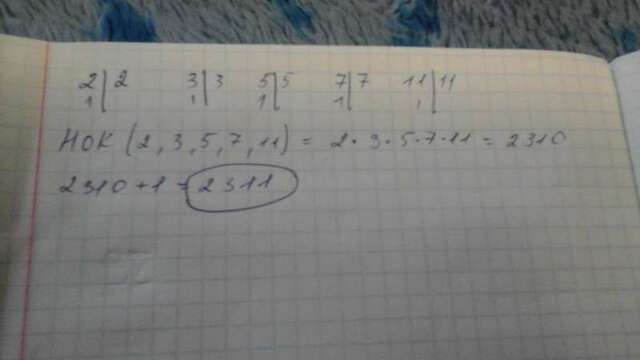 2|2 3|3 5|5 7|7 11|11
1| 1| 1| 1| 1|
НОК (2, 3, 5, 7, 11) = 2·3·5·7·11 = 2310
2310+1 = 2311